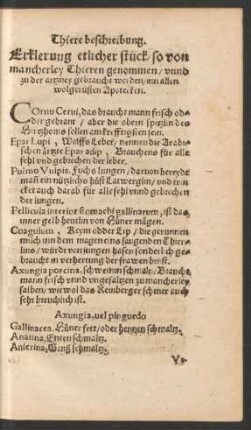 Thiere beschreibung.
Erklerung etlicher stück / so von
mancherley Thieren genommen / vnnd
zu der artzney gebraucht werden / inn allen
wolgerüsten Apotecken.
COrnu Cerui, das braucht mann frisch od-
der gebrant / aber die obern spitzlin des
Hirtzhorns sollen am krefftigsten sein.
Epar Lupi, Wolffs Leber, nennen die Arabi-
schen ärtzte Epar adip, Brauchens für alle
fehl vnd gebrechen der leber.
Pulmo Vulpis. Fuchs lungen / daruon bereyt
man ein nützliche hüst Latwergün / vnd trin-
cket auch darab für alle fehl vnnd gebrechen
der lungen.
Pellicula interior stomachi gallinarum, ist das
inner gelb heutlin von Hüner mägen.
Coagulum, Reyn odder Lip / die gerunnen
milch inn dem magen eins saugenden Thier-
lins / würdt von jungen hasen sonderlich ge-
braucht in verhertung der frawen brüst.
Axungia porcina, schweinin schmaltz / Braucht
mann frisch vnnd vngesaltzen zu mancherley
salben / wiewol das Reinberger schmer auch
sehr breuchlich ist.
Axungia, uel pinguedo
Gallinacea, Hüner fett / oder hennen schmaltz.
Anatina, Enten schmaltz.
Anserina, Genß schmaltz.